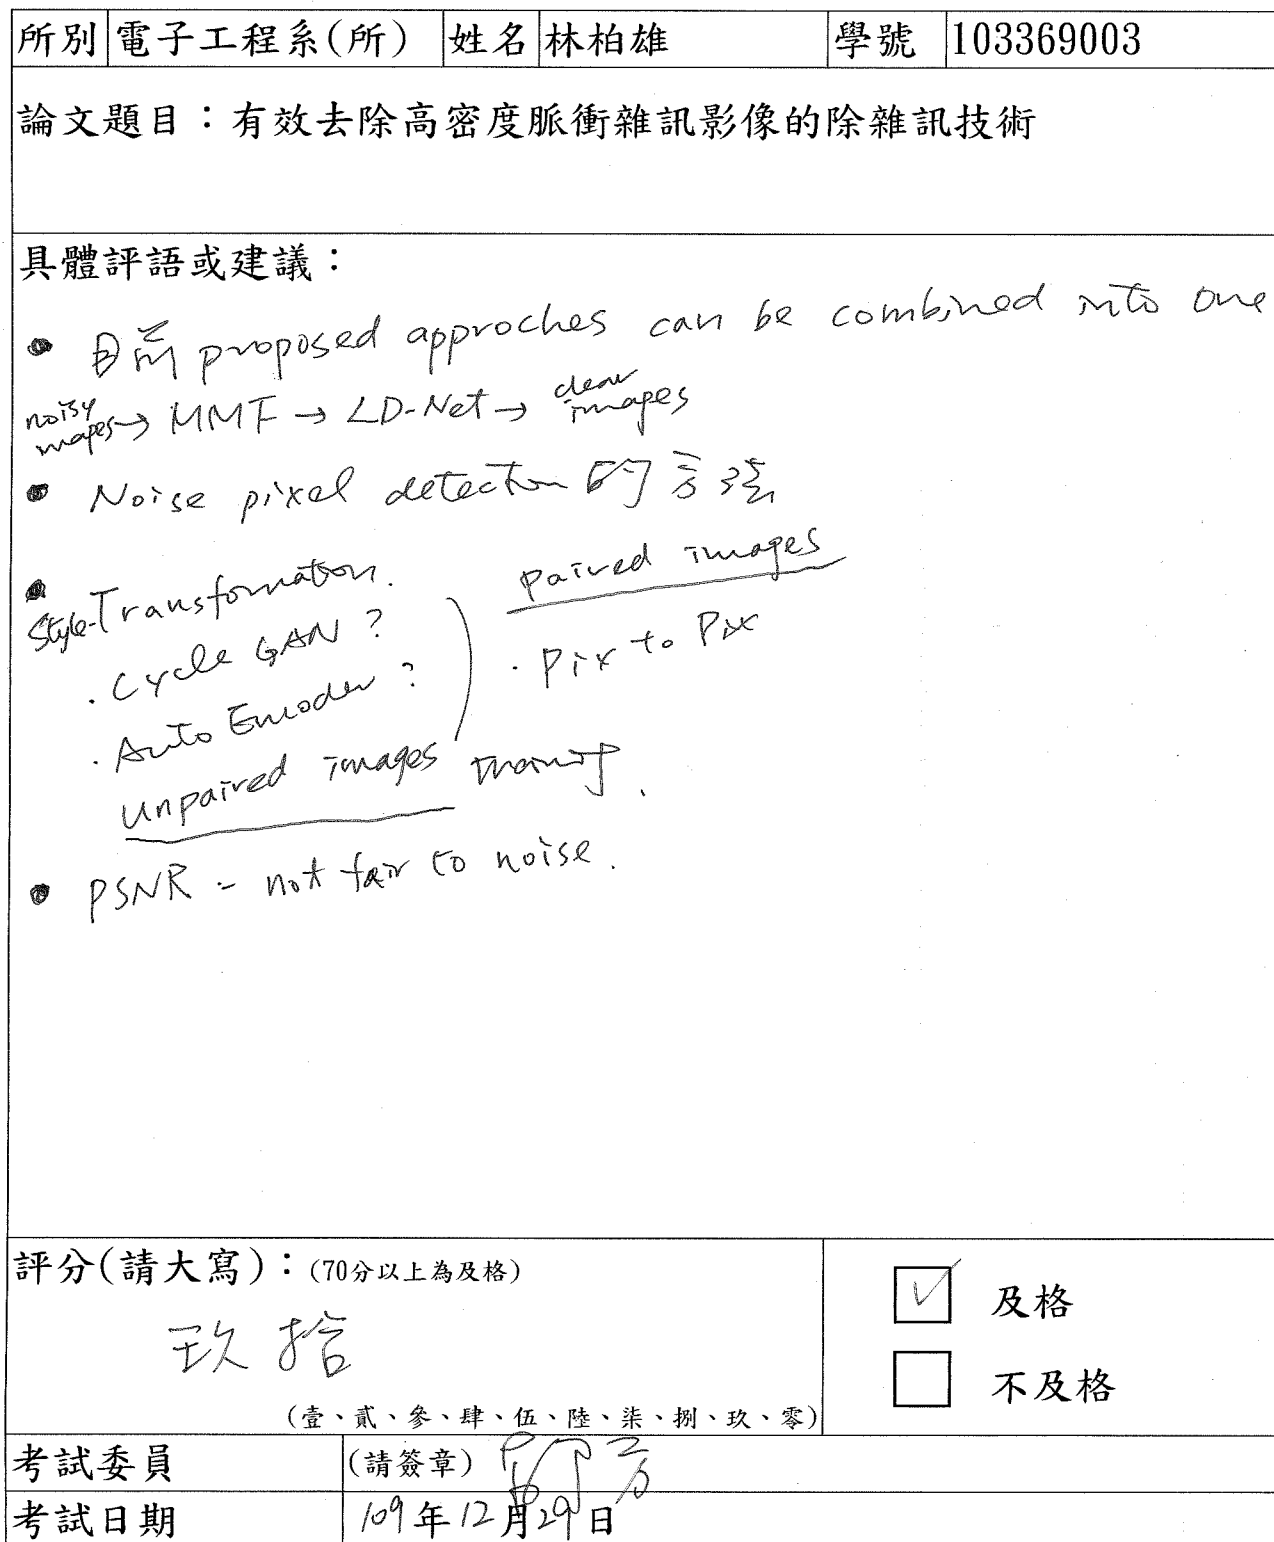 所別 電子工程系(所) 姓名 林柏雄 學號 103369003
論文題目：有效去除高密度脈衝雜訊影像的除雜訊技術
具體評語或建議：
目前 proposed approches can be combined into one
noisy images → MMF → LD-Net → clear images
Noise pixel detection 的方法
Style-Transformation.
paired images
· Cycle GAN ?
· Pix to Pix
· Auto Encoder ?
unpaired images training.
PSNR - not fair to noise.
評分(請大寫)：(70分以上為及格)
✓ 及格
玖拾
不及格
(壹、貳、參、肆、伍、陸、柒、捌、玖、零)
考試委員 (請簽章)
考試日期 109年12月29日